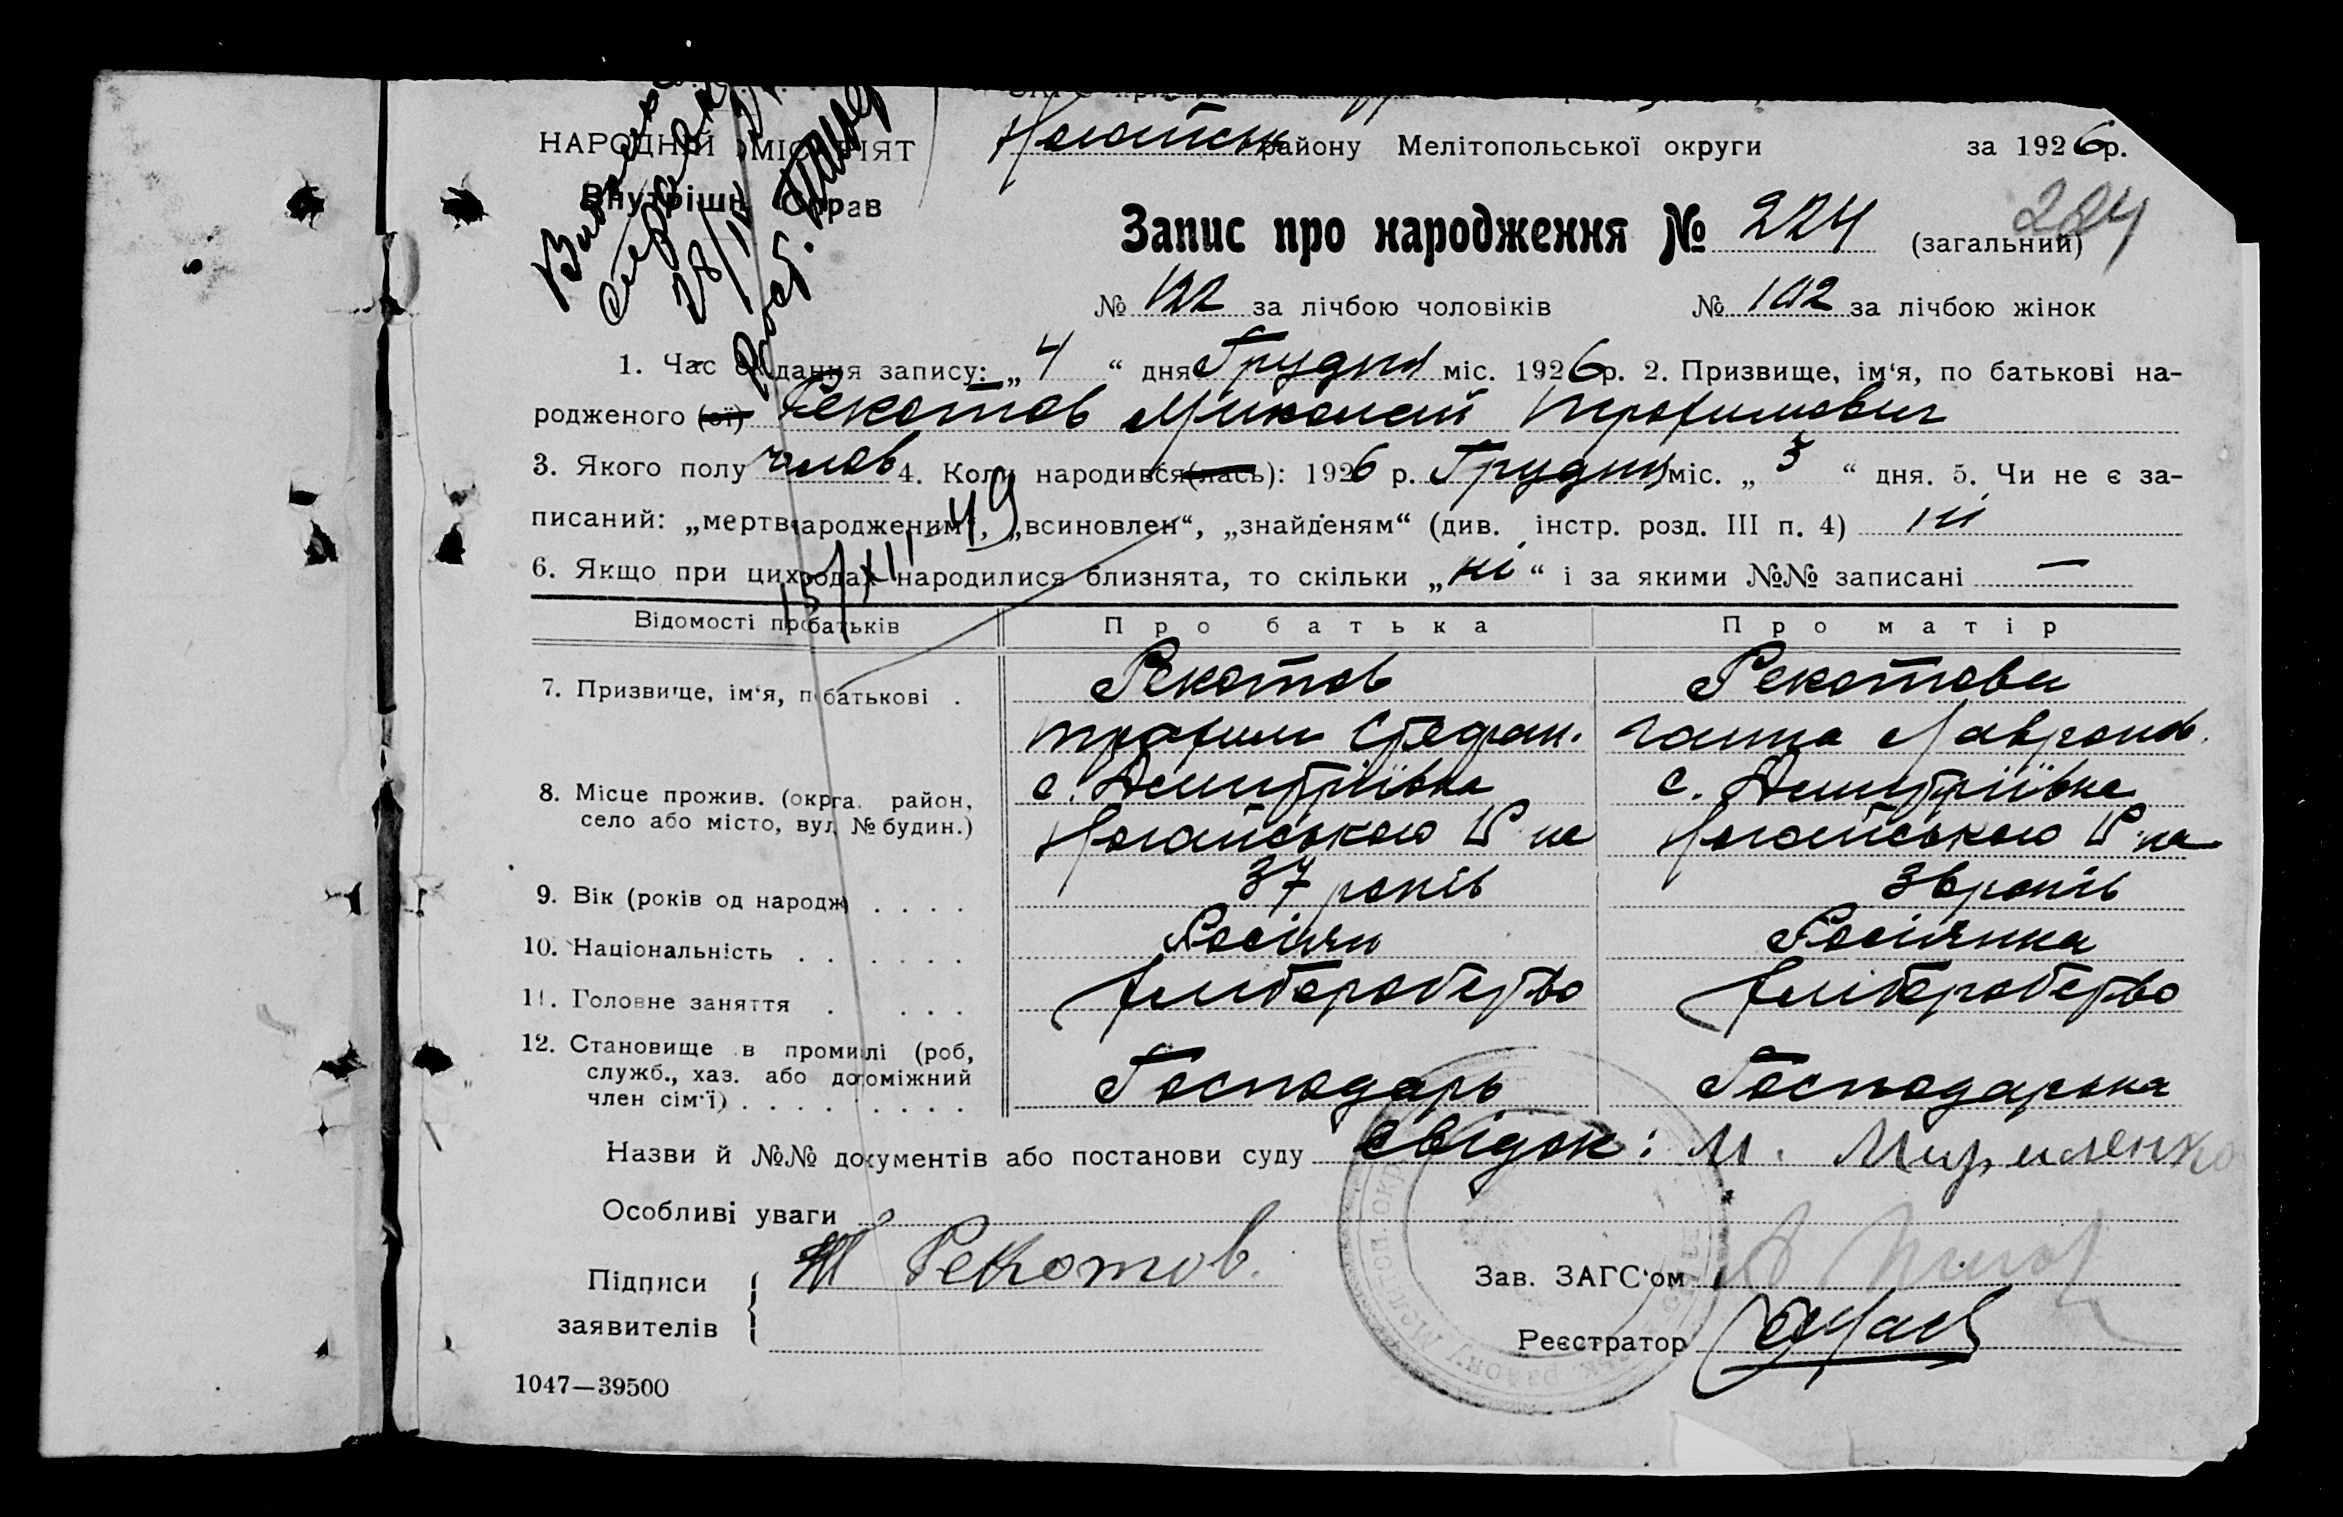 Ногайськ району Мелітопольської округи за 1926 р.
НАРОДНИЙ КОМІСАРІЯТ
Внутрішн. Справ
Запис про народження № 224 (загальний) 224
№ 122 за лічбою чоловіків № 102 за лічбою жінок
1. Час складання запису: „ 4 “ дня Грудня міс. 1926 р. 2. Призвище, ім‘я, по батькові на-
родженого (ої) Рекотов Миколай Трофимович
3. Якого полу чолов 4. Коли народився (лась): 1926 р. Грудня міс. „ 3 “ дня. 5. Чи не є за-
писаний: „мертвнародженим“, „всиновлен“, „знайденям“ (див. інстр. розд. III п. 4) ні
6. Якщо при цих родах народилися близнята, то скільки „ ні “ і за якими №№ записані —
Відомості про батьків Про батька Про матір
7. Призвище, ім‘я, по батькові . Рекотов Рекотова
Трофим Стефан. Ганна Лавронов.
8. Місце прожив. (окрга. район, с. Дмитріївка с. Дмитріївка
село або місто, вул. № будин.) Ногайського Р-на Ногайського Р-на
9. Вік (років од народж) . . . . 37 років 36 років
10. Національність . . . . . . Росіян Росіянка
11. Головне заняття . . . . Хліборобство Хліборобство
12. Становище в промислі (роб,
служб., хаз. або допоміжний
член сім‘ї) . . . . . . . . . Господарь Господарька
Назви й №№ документів або постанови суду Свідок: И.
Особливі уваги
Підписи
заявителів Т Рекотов.
Зав. ЗАГС‘ом
Реєстратор
1047—39500